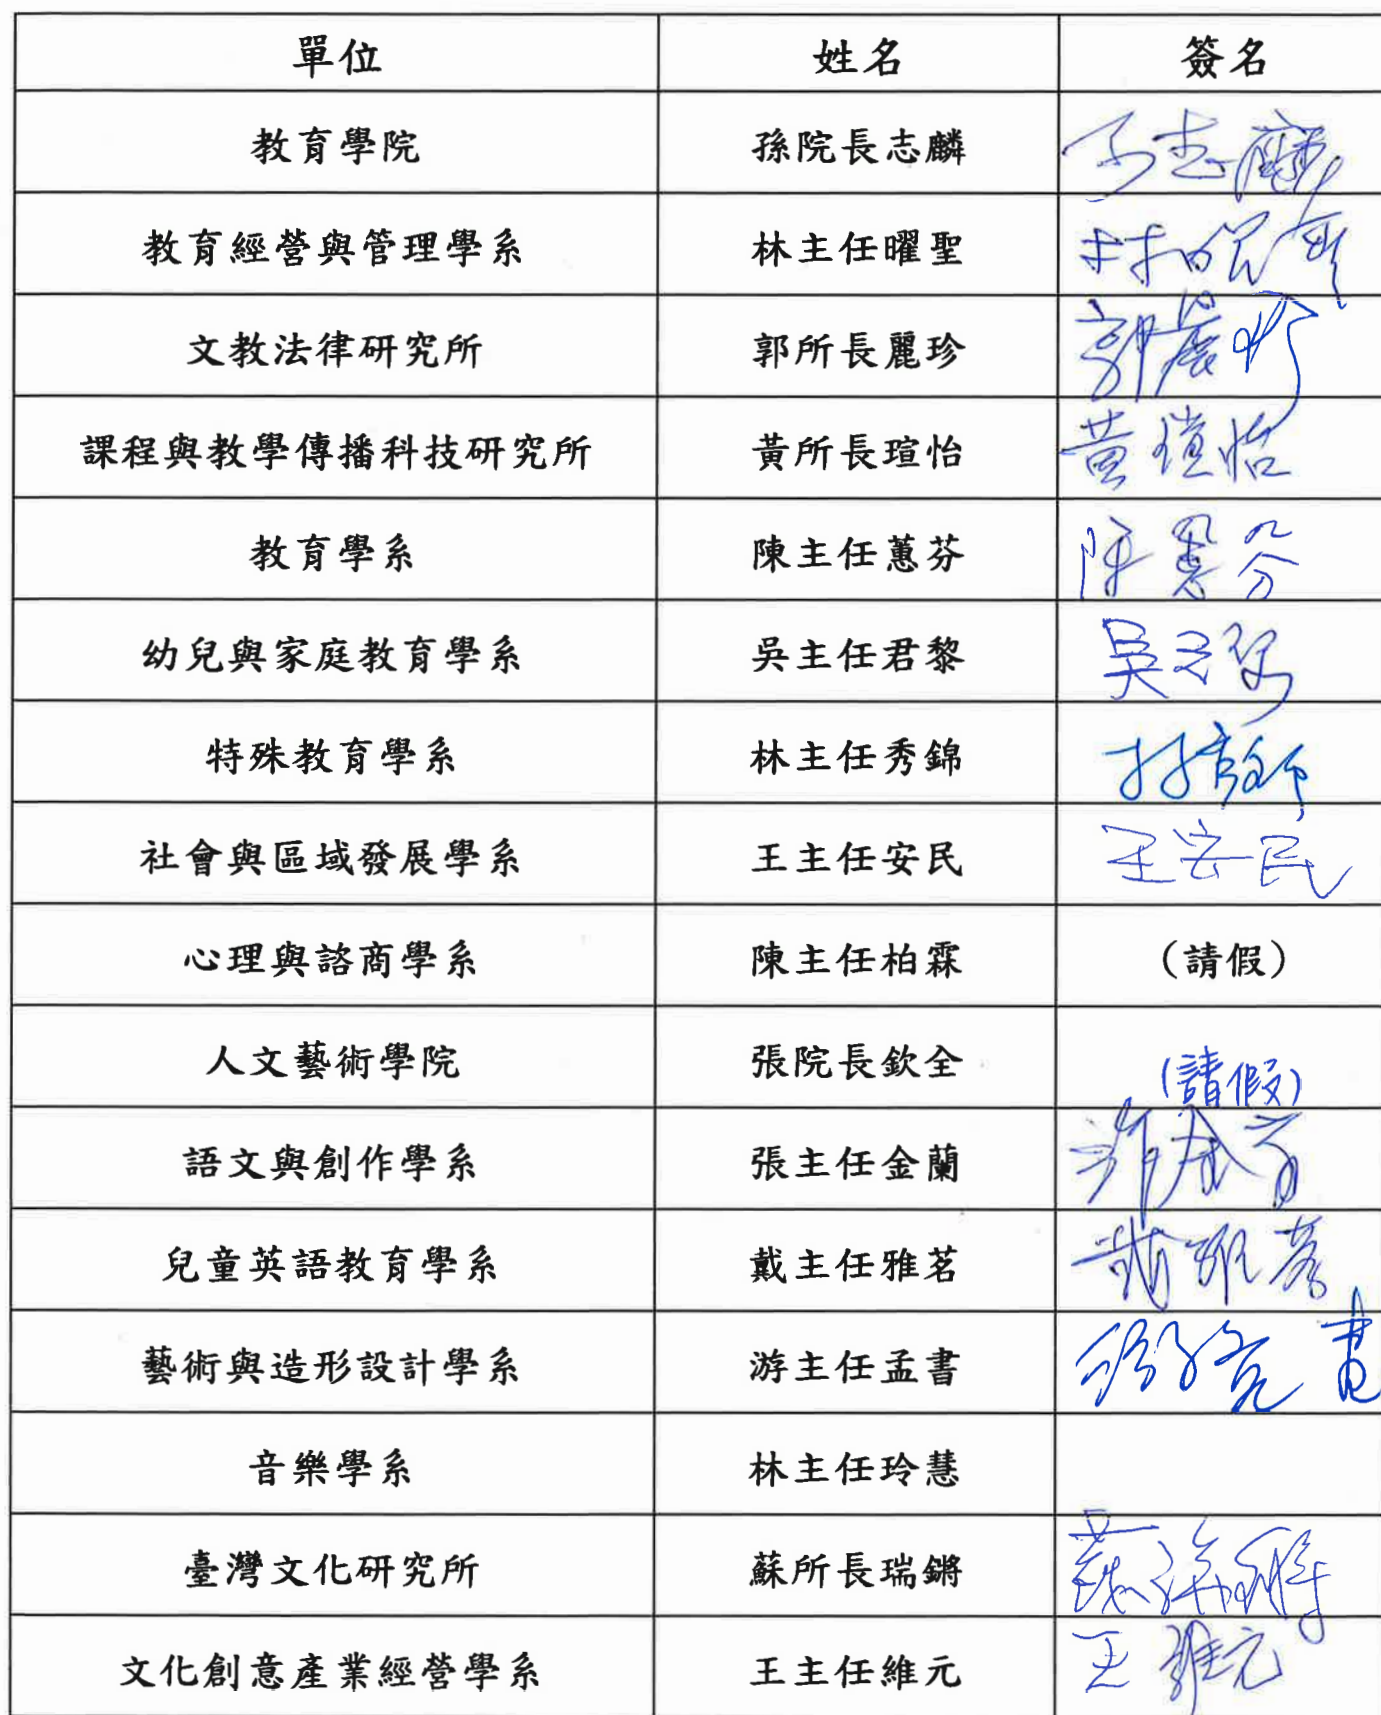 單位 姓名 簽名
教育學院 孫院長志麟 孫志麟
教育經營與管理學系 林主任曜聖 林曜聖
文教法律研究所 郭所長麗珍 郭麗珍
課程與教學傳播科技研究所 黃所長瑄怡 黃瑄怡
教育學系 陳主任蕙芬 陳蕙芬
幼兒與家庭教育學系 吳主任君黎 吳君黎
特殊教育學系 林主任秀錦 林秀錦
社會與區域發展學系 王主任安民 王安民
心理與諮商學系 陳主任柏霖 (請假)
人文藝術學院 張院長欽全 (請假)
語文與創作學系 張主任金蘭 張金蘭
兒童英語教育學系 戴主任雅茗 戴雅茗
藝術與造形設計學系 游主任孟書 游孟書
音樂學系 林主任玲慧
臺灣文化研究所 蘇所長瑞鏘 蘇瑞鏘
文化創意產業經營學系 王主任維元 王維元